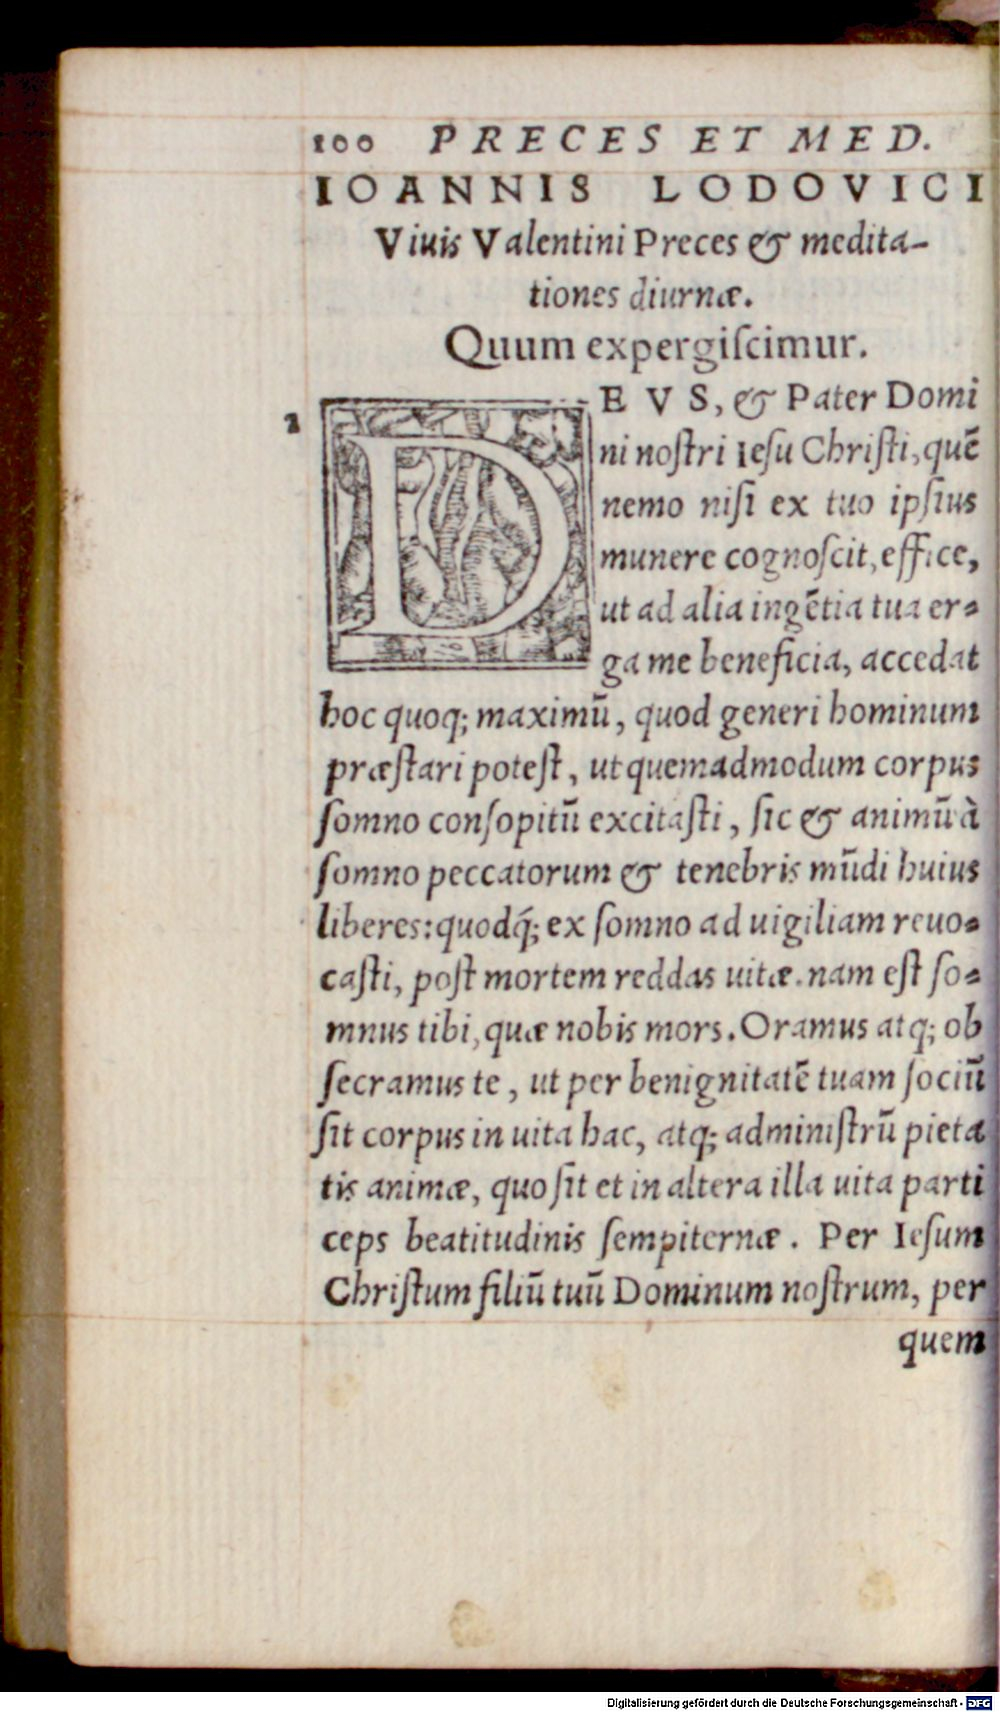 100 PRECES ET MED.
IOANNIS LODOVICI
Viuis Valentini Preces & medita-
tiones diurnæ.
Quum expergiſcimur.
1
DEVS, & Pater Domi
ni noſtri Ieſu Chriſti, quē
nemo niſi ex tuo ipſius
munere cognoſcit, effice,
ut ad alia ingētia tua er-
ga me beneficia, accedat
hoc quoq; maximū, quod generi hominum
præſtari poteſt, ut quemadmodum corpus
ſomno conſopitū excitaſti, ſic & animū à
ſomno peccatorum & tenebris mūdi huius
liberes: quodq́; ex ſomno ad uigiliam reuo-
caſti, poſt mortem reddas uitæ. nam eſt ſo-
mnus tibi, quæ nobis mors. Oramus atq; ob
ſecramus te, ut per benignitatē tuam ſociū
ſit corpus in uita hac, atq; adminiſtrū pieta
tis animæ, quo ſit et in altera illa uita parti
ceps beatitudinis ſempiternæ. Per Ieſum
Chriſtum filiū tuū Dominum noſtrum, per
quem
Digitalisierung gefördert durch die Deutsche Forschungsgemeinschaft - DFG